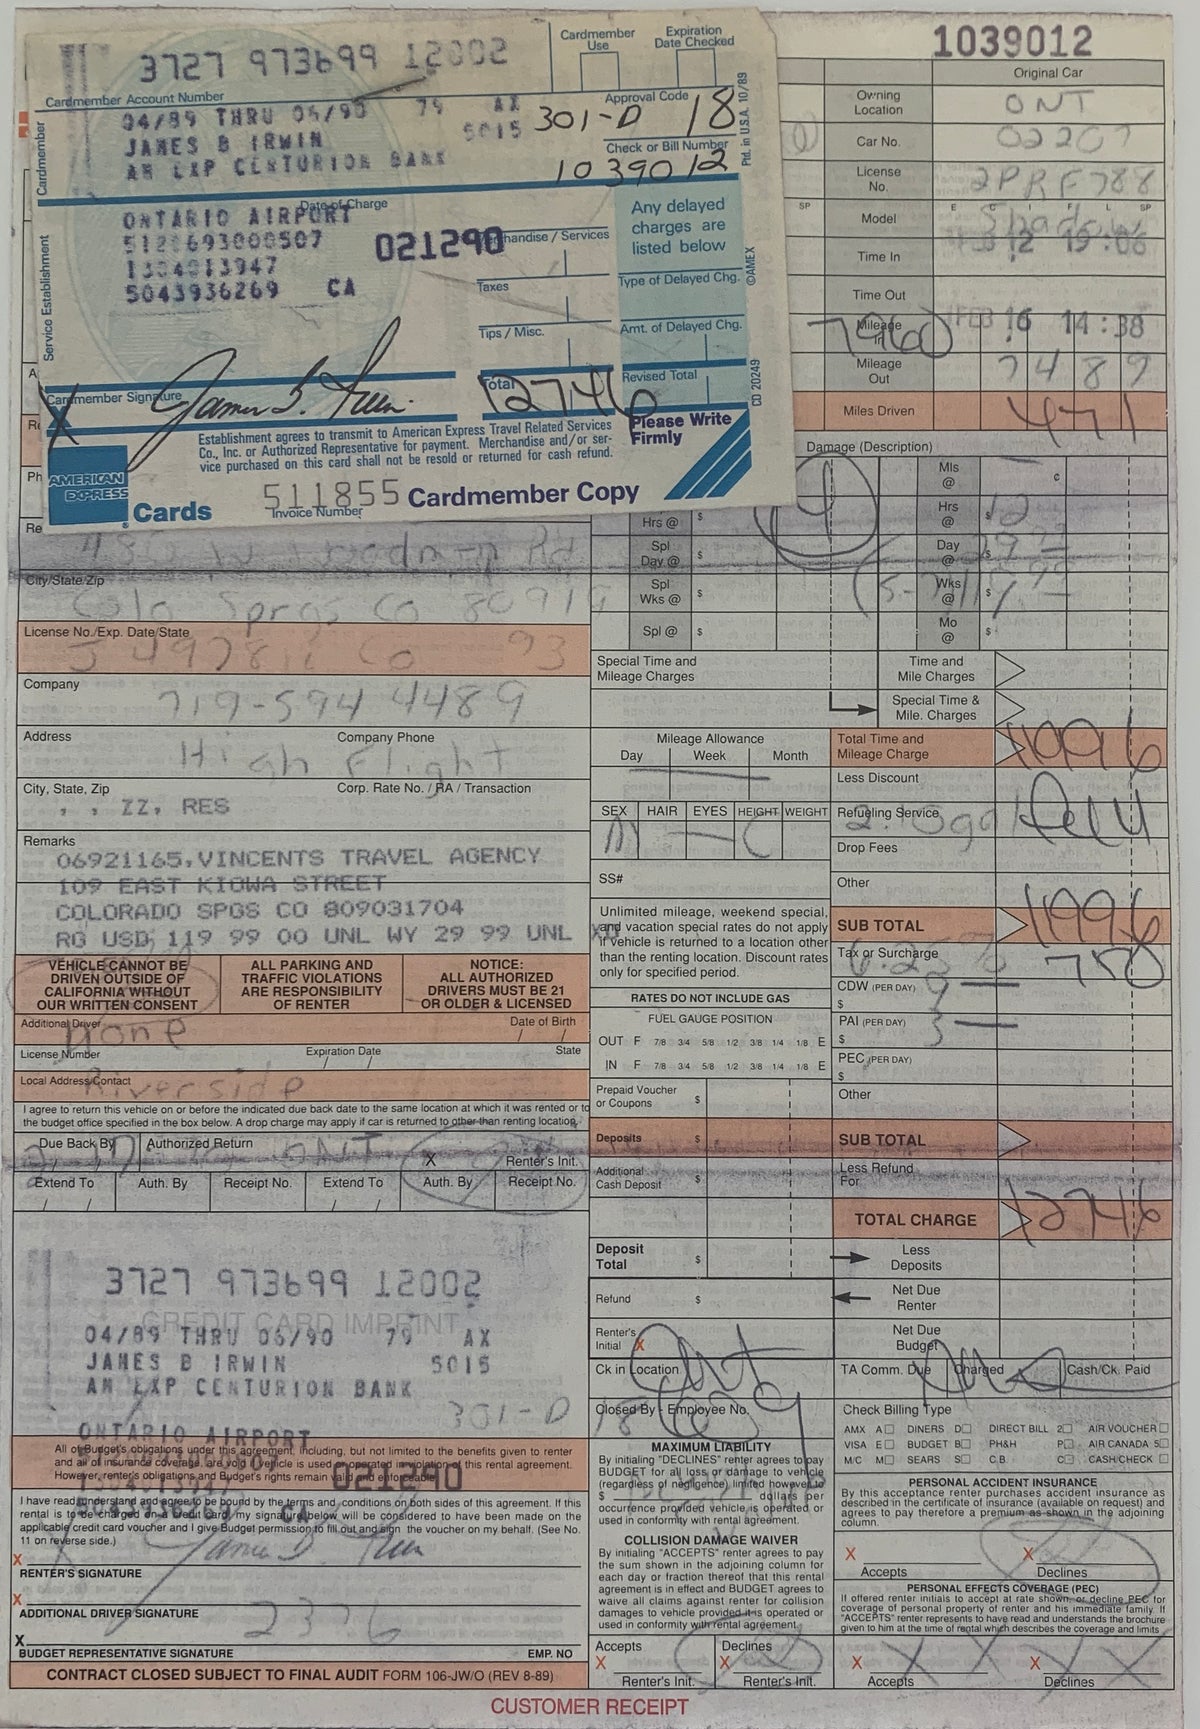 1039012
3727 973699 12002
Cardmember Use
Expiration Date Checked
Cardmember Account Number
Cardmember
04/89 THRU 06/90 79 AX
JAMES B IRWIN 5015
AM EXP CENTURION BANK
Approval Code
301-D 18
Check or Bill Number
1039012
Ptd. in U.S.A. 10/89
Service Establishment
Date of Charge
ONTARIO AIRPORT
5043936269 CA
021290
Merchandise / Services
Taxes
Tips / Misc.
Total
12746
Any delayed charges are listed below
Type of Delayed Chg.
Amt. of Delayed Chg.
Revised Total
©AMEX
CD 20249
Cardmember Signature
X James B. Irwin
Establishment agrees to transmit to American Express Travel Related Services
Co., Inc. or Authorized Representative for payment. Merchandise and/or ser-
vice purchased on this card shall not be resold or returned for cash refund.
Please Write Firmly
AMERICAN EXPRESS
® Cards
511855
Invoice Number
Cardmember Copy
Original Car
Owning Location ONT
Car No. 02207
License No. 2PRF788
SP E C I F L SP
Model Shadow
Time In FEB 12 19:06
Time Out
Mileage In 7960
FEB 16 14:38
Mileage Out 7489
Miles Driven 471
Damage (Description)
Mls @ ¢
Hrs @ $ Hrs @ $ 12
Spl Day @ $ Day @ $
Spl Wks @ $ Wks @ $
Spl @ $ Mo @ $
Special Time and Mileage Charges
Time and Mile Charges
Special Time & Mile. Charges
City/State/Zip
Colo Sprgs Co 80919
License No./Exp. Date/State
Co 93
Company
719-594 4489
Address
Company Phone
High Flight
City, State, Zip
Corp. Rate No. / RA / Transaction
, , ZZ, RES
Remarks
06921165,VINCENTS TRAVEL AGENCY
109 EAST KIOWA STREET
COLORADO SPGS CO 809031704
RG USD, 119 99 00 UNL WY 29 99 UNL XD
VEHICLE CANNOT BE DRIVEN OUTSIDE OF CALIFORNIA WITHOUT OUR WRITTEN CONSENT
ALL PARKING AND TRAFFIC VIOLATIONS ARE RESPONSIBILITY OF RENTER
NOTICE: ALL AUTHORIZED DRIVERS MUST BE 21 OR OLDER & LICENSED
Additional Driver
None
Date of Birth
License Number
Expiration Date
State
Local Address/Contact
Riverside
I agree to return this vehicle on or before the indicated due back date to the same location at which it was rented or to
the budget office specified in the box below. A drop charge may apply if car is returned to other than renting location.
Due Back By
Authorized Return
ONT
X Renter's Init.
Extend To
Auth. By
Receipt No.
Extend To
Auth. By
Receipt No.
3727 973699 12002
CREDIT CARD IMPRINT
04/89 THRU 06/90 79 AX
JAMES B IRWIN 5015
AM EXP CENTURION BANK
301-D
ONTARIO AIRPORT
021290
All of Budget's obligations under this agreement, including, but not limited to the benefits given to renter
and all of insurance coverage, are void if vehicle is used or operated in violation of this rental agreement.
However, renter's obligations and Budget's rights remain valid and enforceable.
I have read, understand and agree to be bound by the terms and conditions on both sides of this agreement. If this
rental is to be charged on a credit card, my signature below will be considered to have been made on the
applicable credit card voucher and I give Budget permission to fill out and sign the voucher on my behalf. (See No.
11 on reverse side.)
X James B. Irwin
RENTER'S SIGNATURE
X
ADDITIONAL DRIVER SIGNATURE
2376
X
BUDGET REPRESENTATIVE SIGNATURE EMP. NO
CONTRACT CLOSED SUBJECT TO FINAL AUDIT FORM 106-JW/O (REV 8-89)
Mileage Allowance
Day Week Month
SEX HAIR EYES HEIGHT WEIGHT
M
SS#
Unlimited mileage, weekend special,
and vacation special rates do not apply
if vehicle is returned to a location other
than the renting location. Discount rates
only for specified period.
RATES DO NOT INCLUDE GAS
FUEL GAUGE POSITION
OUT F 7/8 3/4 5/8 1/2 3/8 1/4 1/8 E
IN F 7/8 3/4 5/8 1/2 3/8 1/4 1/8 E
Prepaid Voucher or Coupons $
Deposits $
Additional Cash Deposit
Deposit Total $
Refund $
Renter's Initial X
Ck in Location
Ont
Closed By - Employee No.
MAXIMUM LIABILITY
By initialing "DECLINES" renter agrees to pay
BUDGET for all loss or damage to vehicle
(regardless of negligence) limited however to
$ dollars per
occurrence provided vehicle is operated or
used in conformity with rental agreement.
COLLISION DAMAGE WAIVER
By initialing "ACCEPTS" renter agrees to pay
the sum shown in the adjoining column for
each day or fraction thereof that this rental
agreement is in effect and BUDGET agrees to
waive all claims against renter for collision
damages to vehicle provided it is operated or
used in conformity with rental agreement.
Accepts
X
Renter's Init.
Declines
X
Renter's Init.
Total Time and Mileage Charge 11996
Less Discount
Refueling Service full
Drop Fees
Other
SUB TOTAL 11996
Tax or Surcharge 6.25% 750
CDW (PER DAY) $ 9
PAI (PER DAY) $ 3
PEC (PER DAY) $
Other
SUB TOTAL
Less Refund For
TOTAL CHARGE 12746
Less Deposits
Net Due Renter
Net Due Budget
TA Comm. Due
Charged
Cash/Ck. Paid
Check Billing Type
AMX A DINERS D DIRECT BILL 2 AIR VOUCHER
VISA E BUDGET B PH&H P AIR CANADA 5
M/C M SEARS S C.B. C CASH/CHECK
PERSONAL ACCIDENT INSURANCE
By this acceptance renter purchases accident insurance as
described in the certificate of insurance (available on request) and
agrees to pay therefore a premium as shown in the adjoining
column.
X Accepts
X Declines
PERSONAL EFFECTS COVERAGE (PEC)
If offered renter initials to accept at rate shown, or decline PEC for
coverage of personal property of renter and his immediate family. If
"ACCEPTS" renter represents to have read and understands the brochure
given to him at the time of rental which describes the coverage and limits
X Accepts
X Declines
CUSTOMER RECEIPT